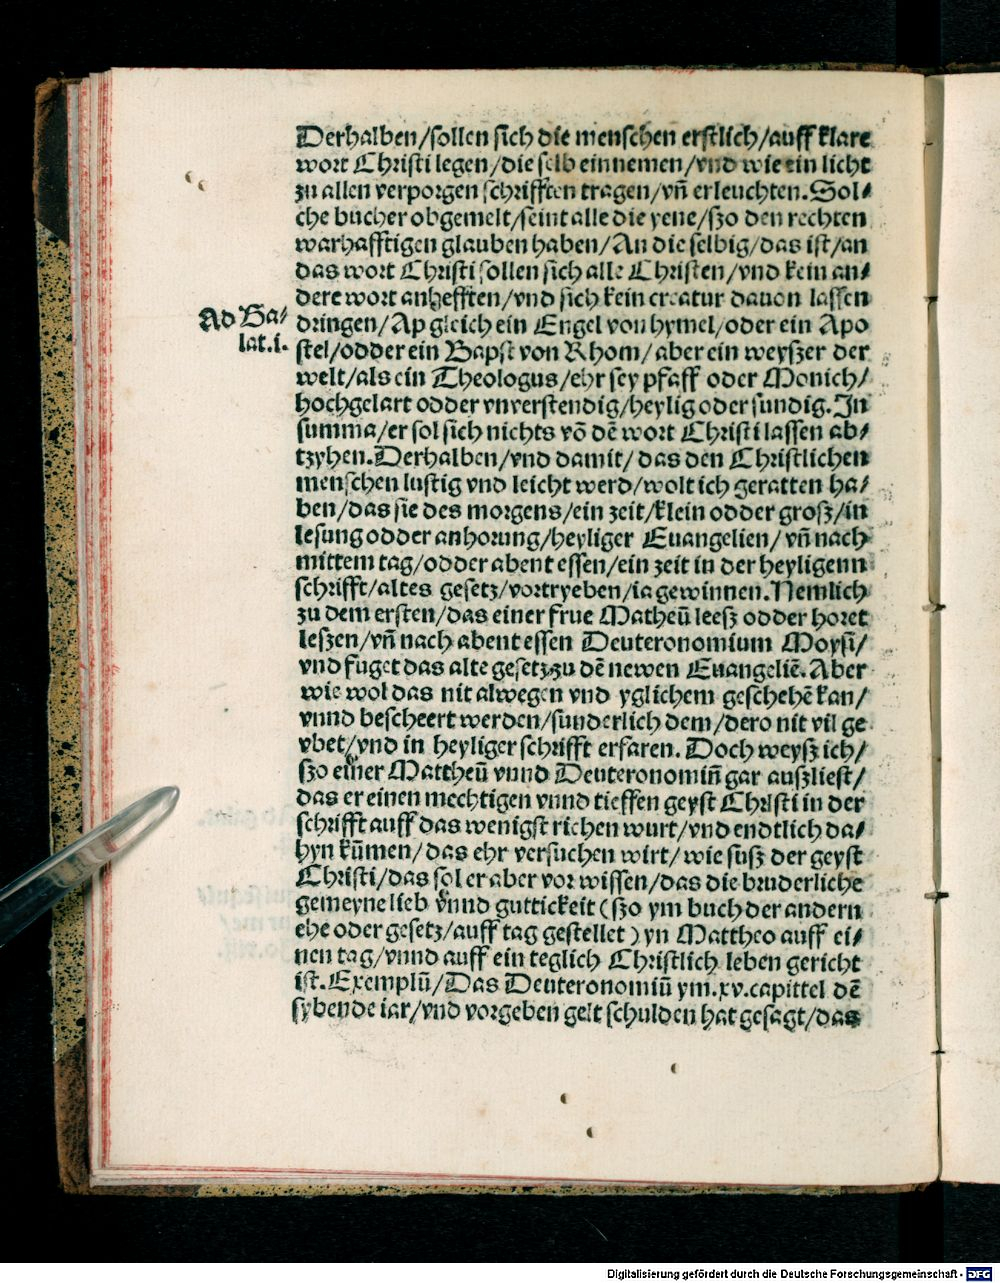 Derhalben/sollen sich die menschen erstlich/auff klare
wort Christi legen/die selb einnemen/vnd wie ein licht
zu allen verporgen schrifften tragen/vñ erleuchten.Sol⸗
che bucher obgemelt/seint alle die yene/szo den rechten
warhafftigen glauben haben/An die selbig/das ist/an
das wort Christi sollen sich alle Christen/vnd kein an⸗
dere wort anhefften/vnd sich kein creatur dauon lassen
Ad Ga⸗
lat.i.
dringen/Ap gleich ein Engel von hymel/oder ein Apo
stel/odder ein Bapst von Rhom/aber ein weyszer der
welt/als ein Theologus/ehr sey pfaff oder Monich/
hochgelart odder vnverstendig/heylig oder sundig.In
summa/er sol sich nichts võ dē wort Christi lassen ab⸗
tzyhen.Derhalben/vnd damit/das den Christlichen
menschen lustig vnd leicht werd/wolt ich geratten ha⸗
ben/das sie des morgens/ein zeit/klein odder grosz/in
lesung odder anhorung/heyliger Euangelien/vñ nach
mittem tag/odder abent essen/ein zeit in der heyligenn
schrifft/altes gesetz/vortryeben/ia gewinnen.Nemlich
zu dem ersten/das einer frue Matheū leesz odder horet
leszen/vñ nach abent essen Deuteronomium Moysi/
vnd fuget das alte gesetz zu dē newen Euangeliē.Aber
wie wol das nit alwegen vnd yglichem geschehē kan/
vnnd bescheert werden/sunderlich dem/dero nit vil ge
vbet/vnd in heyliger schrifft erfaren.Doch weysz ich/
szo einer Mattheū vnnd Deuteronomiū gar auszliest/
das er einen mechtigen vnnd tieffen geyst Christi in der
schrifft auff das wenigst richen wurt/vnd endtlich da⸗
hyn kūmen/das ehr versuchen wirt/wie susz der geyst
Christi/das sol er aber vor wissen/das die bruderliche
gemeyne lieb vnnd guttickeit (szo ym buch der andern
ehe oder gesetz/auff tag gestellet) yn Mattheo auff ei⸗
nen tag/vnnd auff ein teglich Christlich leben gericht
ist.Exemplū/Das Deuteronomiū ym.xv.capittel dē
sybende iar/vnd vorgeben gelt schulden hat gesagt/das
Digitalisierung gefördert durch die Deutsche Forschungsgemeinschaft - DFG